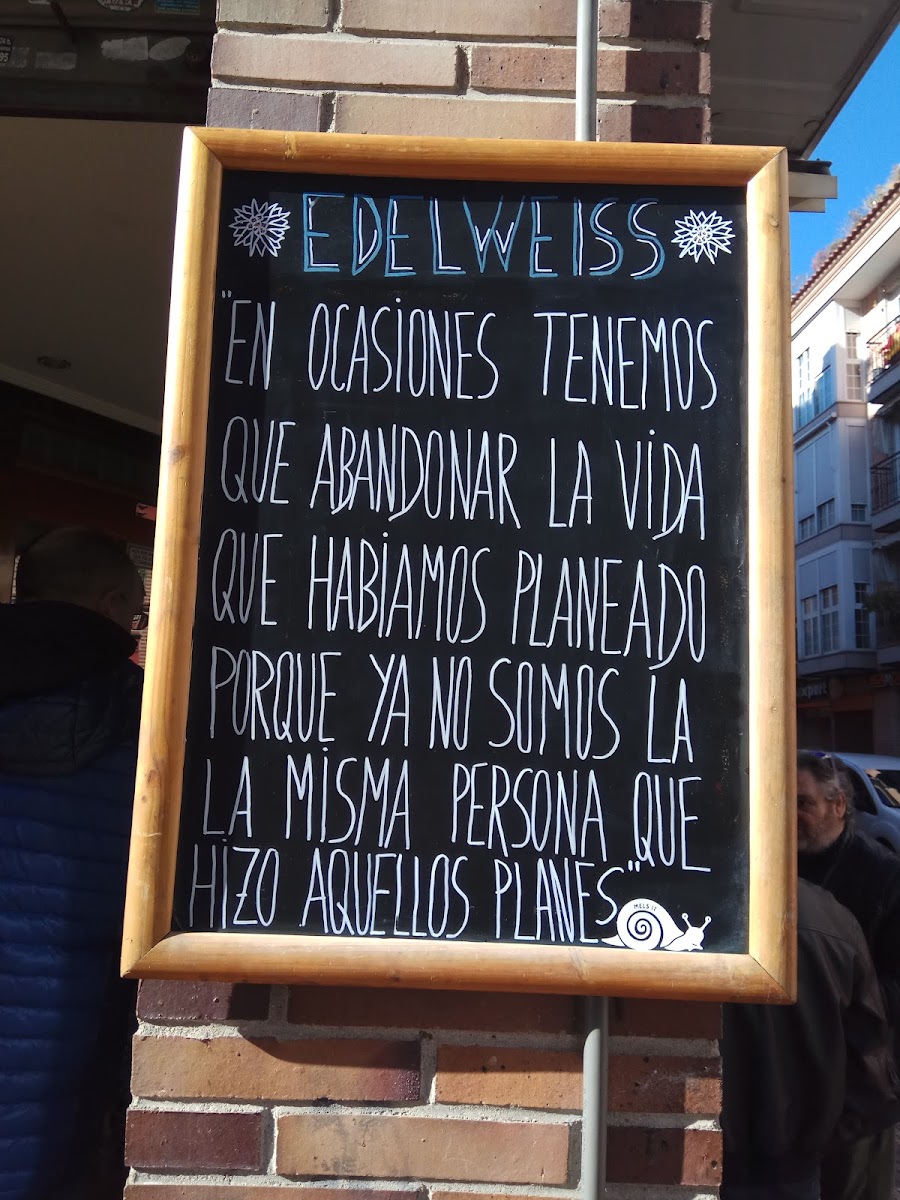 EDELWEISS
"EN OCASIONES TENEMOS
QUE ABANDONAR LA VIDA
QUE HABIAMOS PLANEADO
PORQUE YA NO SOMOS LA
LA MISMA PERSONA QUE
HIZO AQUELLOS PLANES"